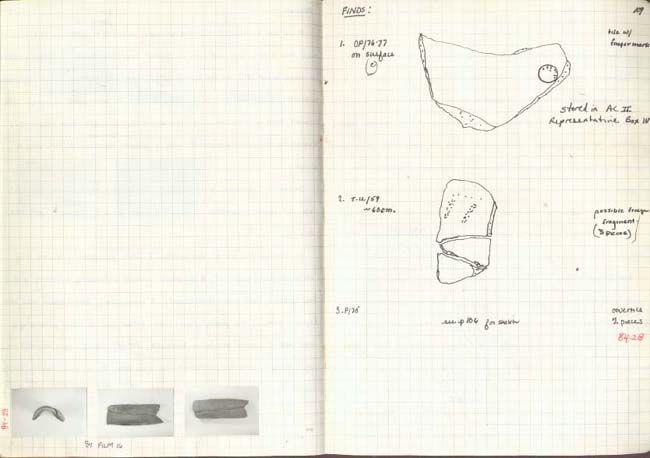 84-28
84 FILM 16
FINDS:
1. OP/76-77
on surface
tile w/
finger mark
stored in AC II
Representative Box IV
2. T-U/59
~60cm.
possible
fragment
(3 pieces)
3. P/75
see p 106 for sketch
covertile
2 pieces
84-28